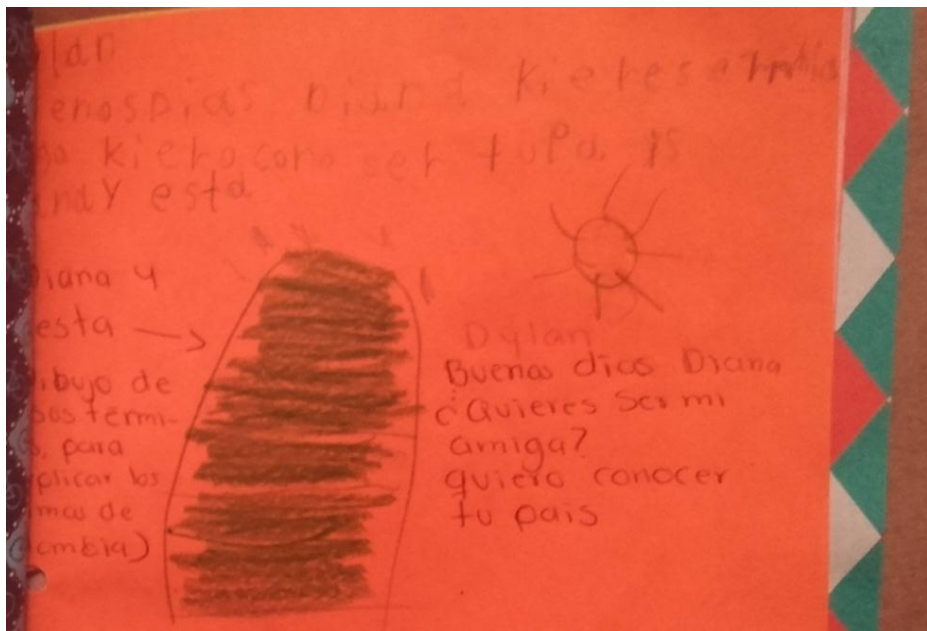 ylan
enosDias Diana kieres
kierocono ser tuPa is
andY esta
Diana y
esta
ibujo de
sos térmi-
para
plicar los
mas de
ombia)
Dylan
Buenos dias Diana
¿Quieres Ser mi
amiga?
quiero conocer
tu pais